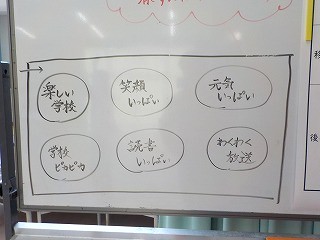 楽しい
学校
笑顔
いっぱい
元気
いっぱい
学校
ピカピカ
読書
いっぱい
わくわく
放送
移
後